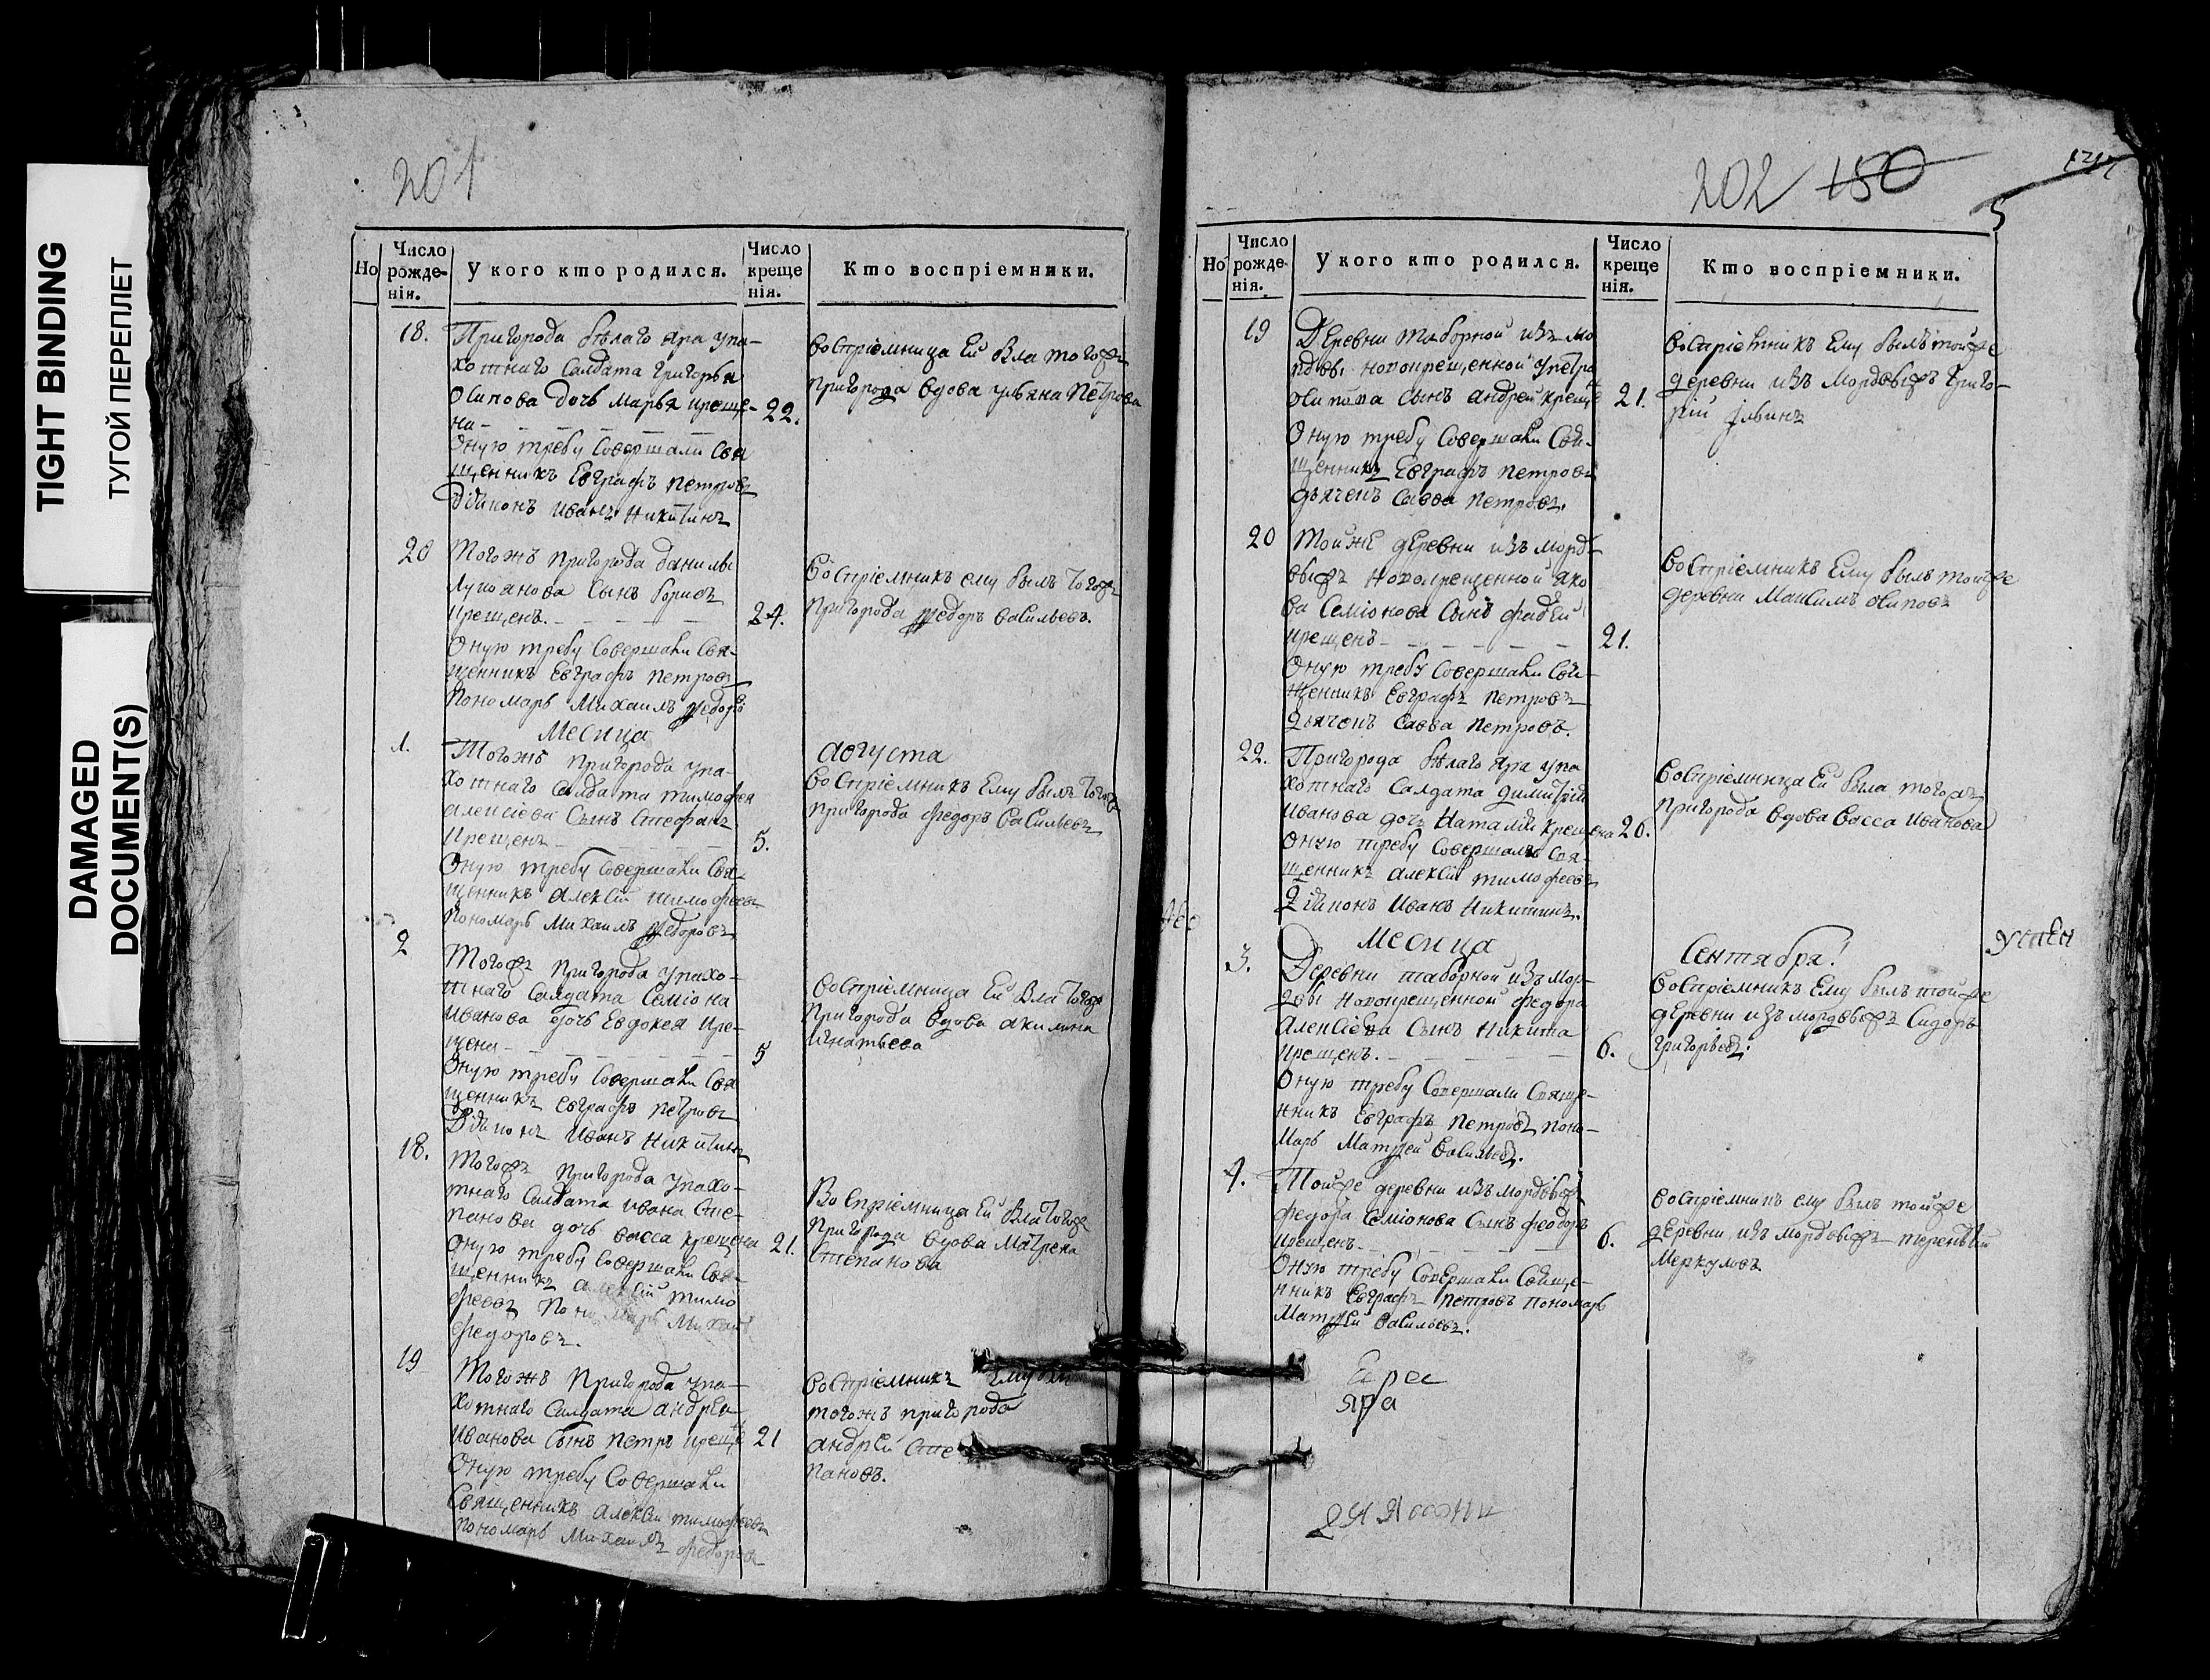 TIGHT BINDING
ТУГОЙ ПЕРЕПЛЕТ
DAMAGED
DOCUMENT(S)
201
Но
Число рожденія.
У кого кто родился.
Число крещенія.
Кто воспріемники.
18.
Пригорода бѣлаго Яра упа-
хотнаго Салдата григорья
Осипова дочь Марья креще-
на
22.
Оную требу Совершали Свя
щенникъ Евграфъ Петровъ
діаконъ Иванъ Никитинъ
Воспріемница Ей Была тогожъ
пригорода вдова ульяна Петрова
20
Тогожъ пригорода данилы
Лукоянова Сынъ борисъ
крещенъ.
24.
Оную требу Совершали Свя-
щенникъ Евграфъ Петровъ
Пономарь Михаилъ федоровъ
Воспріемникъ ему былъ тогожъ
пригорода федоръ Васильевъ.
Месяца
августа
1.
Тогожъ пригорода упа-
хотнаго Салдата тимофея
алексіева Сынъ Стефанъ
крещенъ
5.
Оную требу Совершали Свя-
щенникъ алексій тимофеевъ
Пономарь Михаилъ федоровъ
Воспріемникъ Ему былъ тогожъ
пригорода федоръ Васильевъ
2
Тогожъ пригорода упахо-
тнаго Салдата Семіона
Иванова дочь Евдокея кре-
щена
5
Оную требу Совершали Свя
щенникъ евграфъ петровъ
Діаконъ Иванъ Никитинъ
Воспріемница Ей Была тогожъ
Пригорода вдова акилина
Игнатьева
18.
Тогожъ Пригорода упахо-
тнаго Салдата Ивана Сте-
панова дочь васса крещена
21.
Оную требу Совершали Свя-
щенникъ алексій тимо
феевъ Пономарь Михаилъ
федоровъ.
Воспріемница Ей Была тогожъ
Пригорода вдова Матрена
Степанова
19
Тогожъ Пригорода упа-
хотнаго Салдата андрея
Иванова Сынъ Петръ креще
21
Оную требу Совершали
Священникъ алексій тимофеевъ
Пономарь Михаилъ федоровъ
Воспріемникъ Ему
тогожъ пригорода
андрей Сте
пановъ.
202 150
5
Но
Число рожденія.
У кого кто родился.
Число крещенія.
Кто воспріемники.
19
Деревни таборной изъ мо
рдвы новокрещенной упетра
осипова Сынъ андрей креще
21.
Оную требу Совершали Свя-
щенникъ Евграфъ петровъ
дьячекъ Савва петровъ.
Воспріемникъ Ему былъ тойже
деревни изъ Мордвыжъ григо-
рій ильинъ
20
Тойже деревни изъ морд-
выжъ новокрещенной яко
ва Семіонова Сынъ фадей
крещенъ
21.
Оную требу Совершали Свя-
щенникъ Евграфъ петровъ
дьячекъ Савва петровъ.
Воспріемникъ Ему былъ тойже
деревни Максимъ осиповъ
22.
Пригорода бѣлаго Яра упа
хотнаго Салдата димитрія
Иванова дочь Наталія крещена
26.
Оную требу Совершалъ Свя-
щенникъ алексій тимофеевъ
Діаконъ Иванъ Никитинъ.
Воспріемница Ей была тогожъ
пригорода вдова Васса Иванова
Месяца
Сентября!
успен
3.
Деревни таборной изъ мор-
двы новокрещенной федора
Алексіева Сынъ Никита
крещенъ.
6.
Оную требу Совершали Свяще-
нникъ Евграфъ Петровъ поно-
марь Матфей Васильевъ.
Воспріемникъ Ему былъ тойже
деревни изъ мордвыжъ Сидоръ
григорьевъ.
4.
Тойже деревни изъ мордвыжъ
федора Семіонова Сынъ феодоръ
крещенъ
6.
Оную требу Совершали Свяще-
нникъ Евграфъ петровъ пономарь
Матфей Васильевъ.
Воспріемникъ ему былъ тойже
деревни изъ мордвыжъ терентій
Меркуловъ
Яра